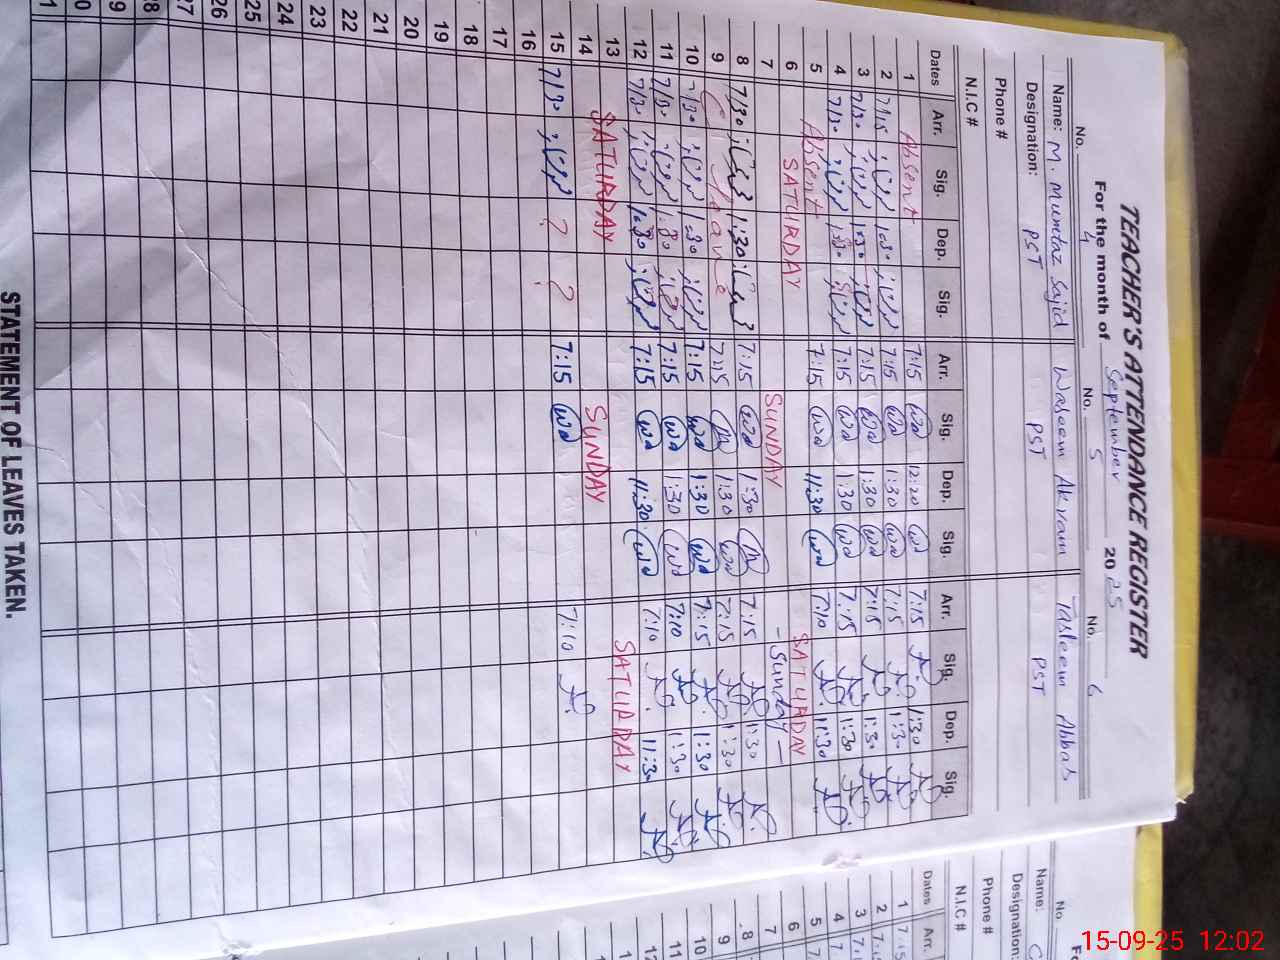 TEACHER'S ATTENDANCE REGISTER
For the month of September 2025
No. 4 No. 5 No. 6
Name: M. Mumtaz Sajid Waseem Akram Tasleem Abbas
Designation: PST PST PST
Phone #
N.I.C #
Dates Arr. Sig. Dep. Sig. Arr. Sig. Dep. Sig. Arr. Sig. Dep. Sig.
1 Absent 7:15 12:20 7:15 1:30
2 7:15 1:30 7:15 1:30 7:15 1:30
3 7:30 1:30 7:15 1:30 7:15 1:30
4 7:30 1:30 7:15 1:30 7:15 1:30
5 Absent 7:15 11:30 7:10 11:30
6 SATURDAY SATURDAY
7 SUNDAY - Sunday -
8 7:30 1:30 7:15 1:30 7:15 1:30
9 Leave 7:15 1:30 7:15 1:30
10 7:30 1:30 7:15 1:30 7:15 1:30
11 7:30 1:30 7:15 1:30 7:10 1:30
12 7:30 1:30 7:15 11:30 7:10 11:30
13 SATURDAY SATURDAY
14 SUNDAY
15 7:30 ? ? 7:15 7:10
16
17
18
19
20
21
22
23
24
25
26
27
28
STATEMENT OF LEAVES TAKEN.
No.
Name:
Designation:
Phone #
N.I.C #
Dates Arr.
1 7:15
2
3
4
5
6
7
8
9
10
11
12
15-09-25 12:02